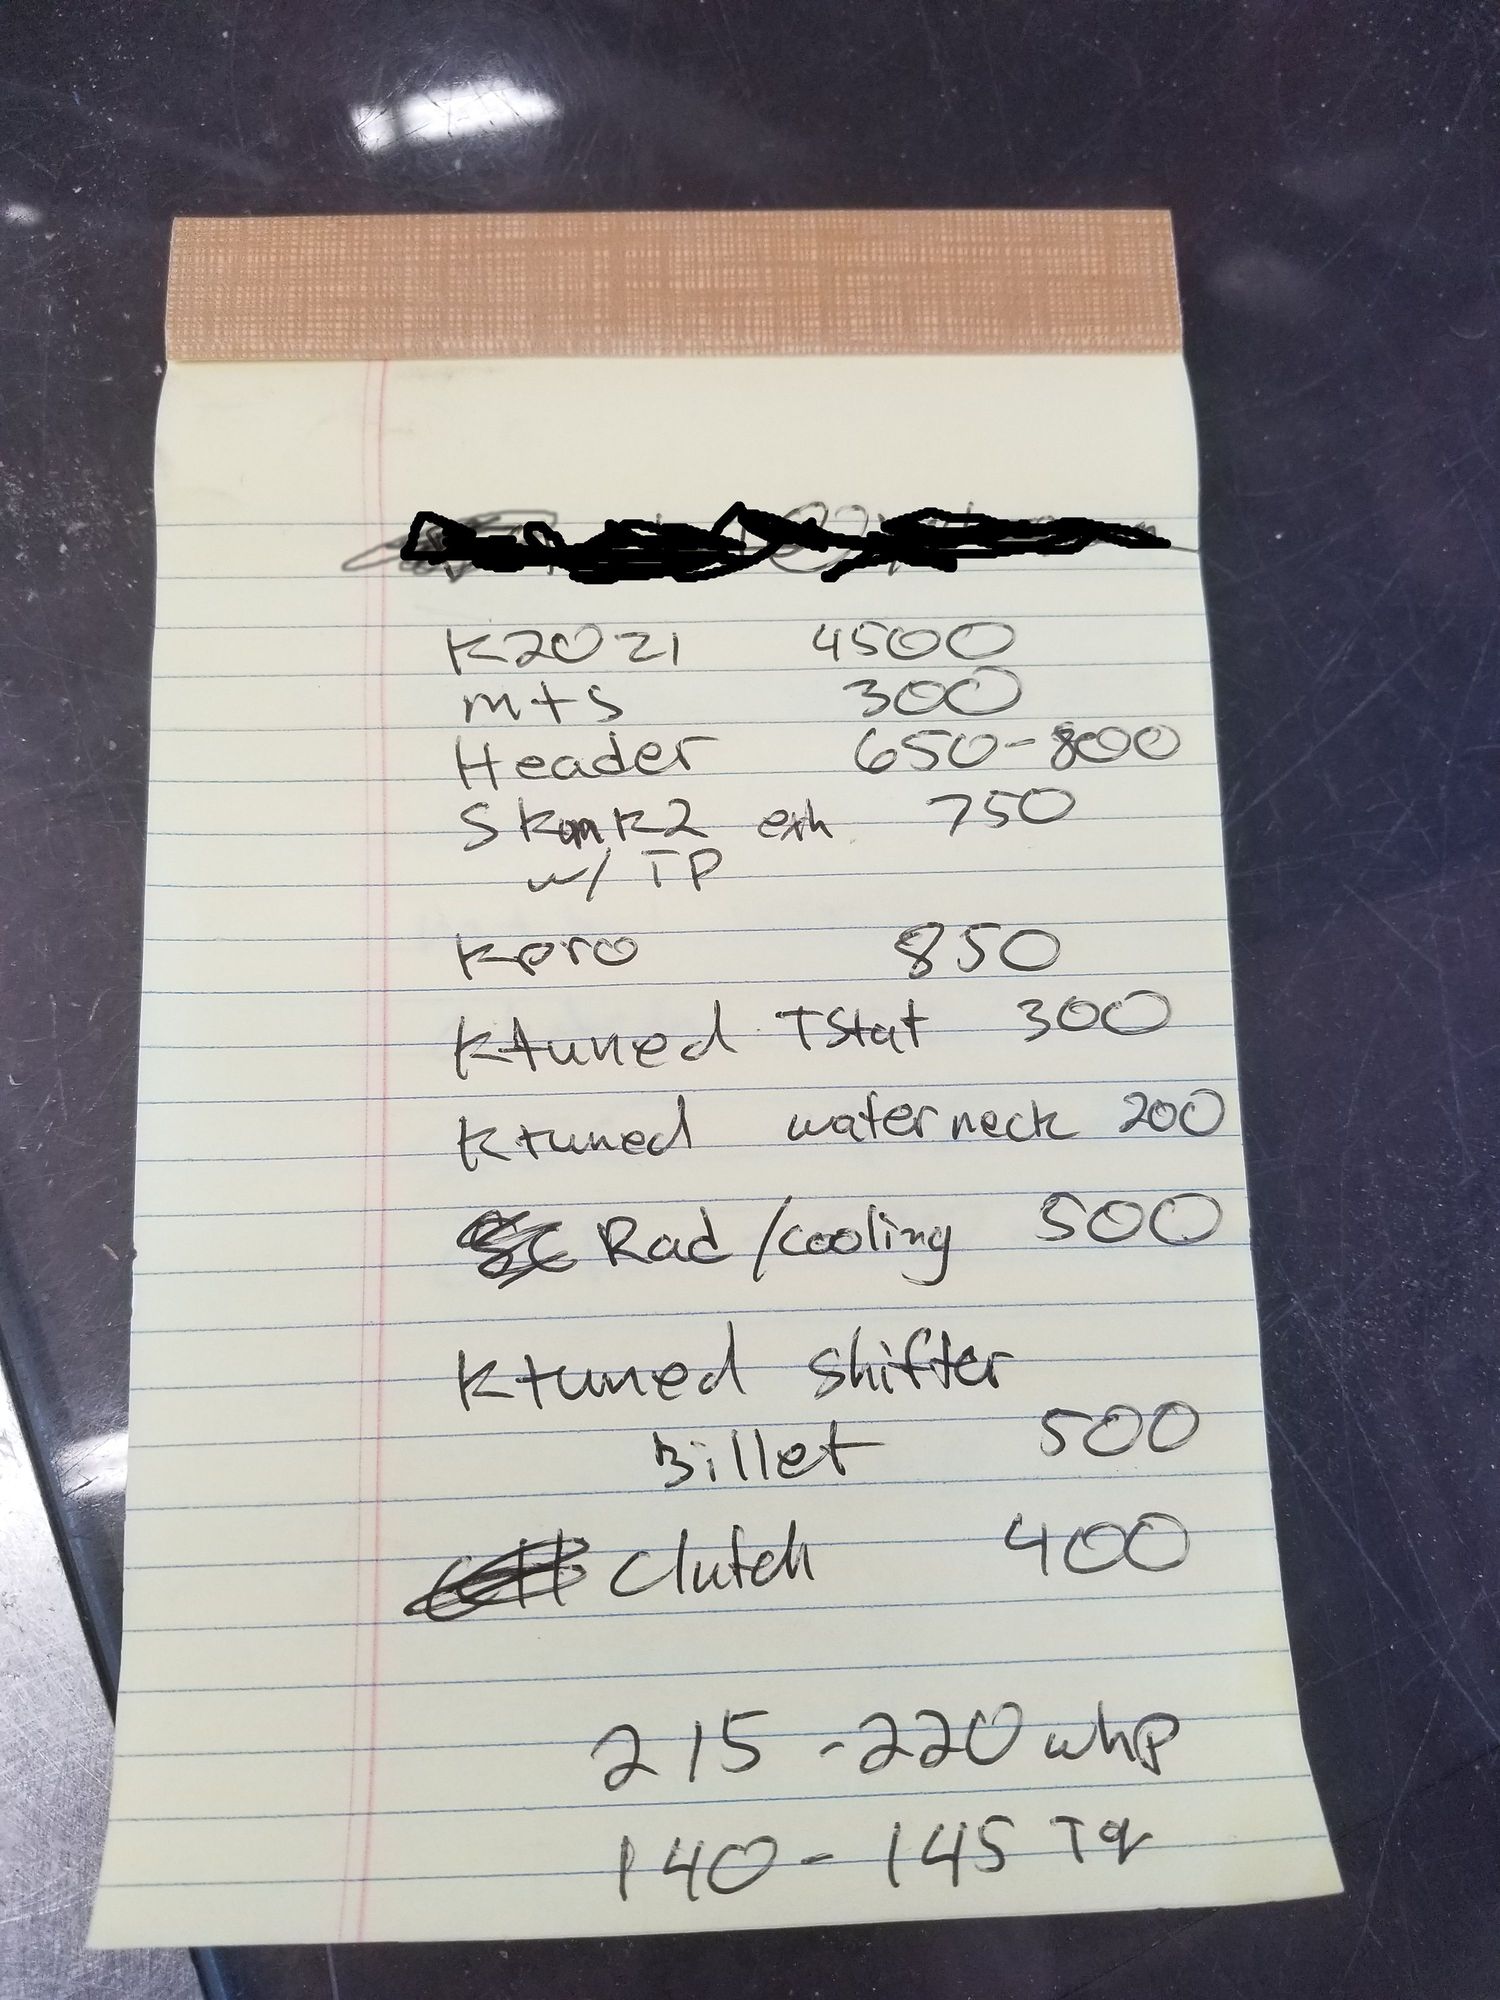 K20Z1 4500
m+s 300
Header 650-800
Skunk2 exh 750
w/ TP
Kpro 850
Ktuned TStat 300
Ktuned water neck 200
Rad/cooling 500
Ktuned shifter
Billet 500
Clutch 400
215-220 whp
140-145 Tq